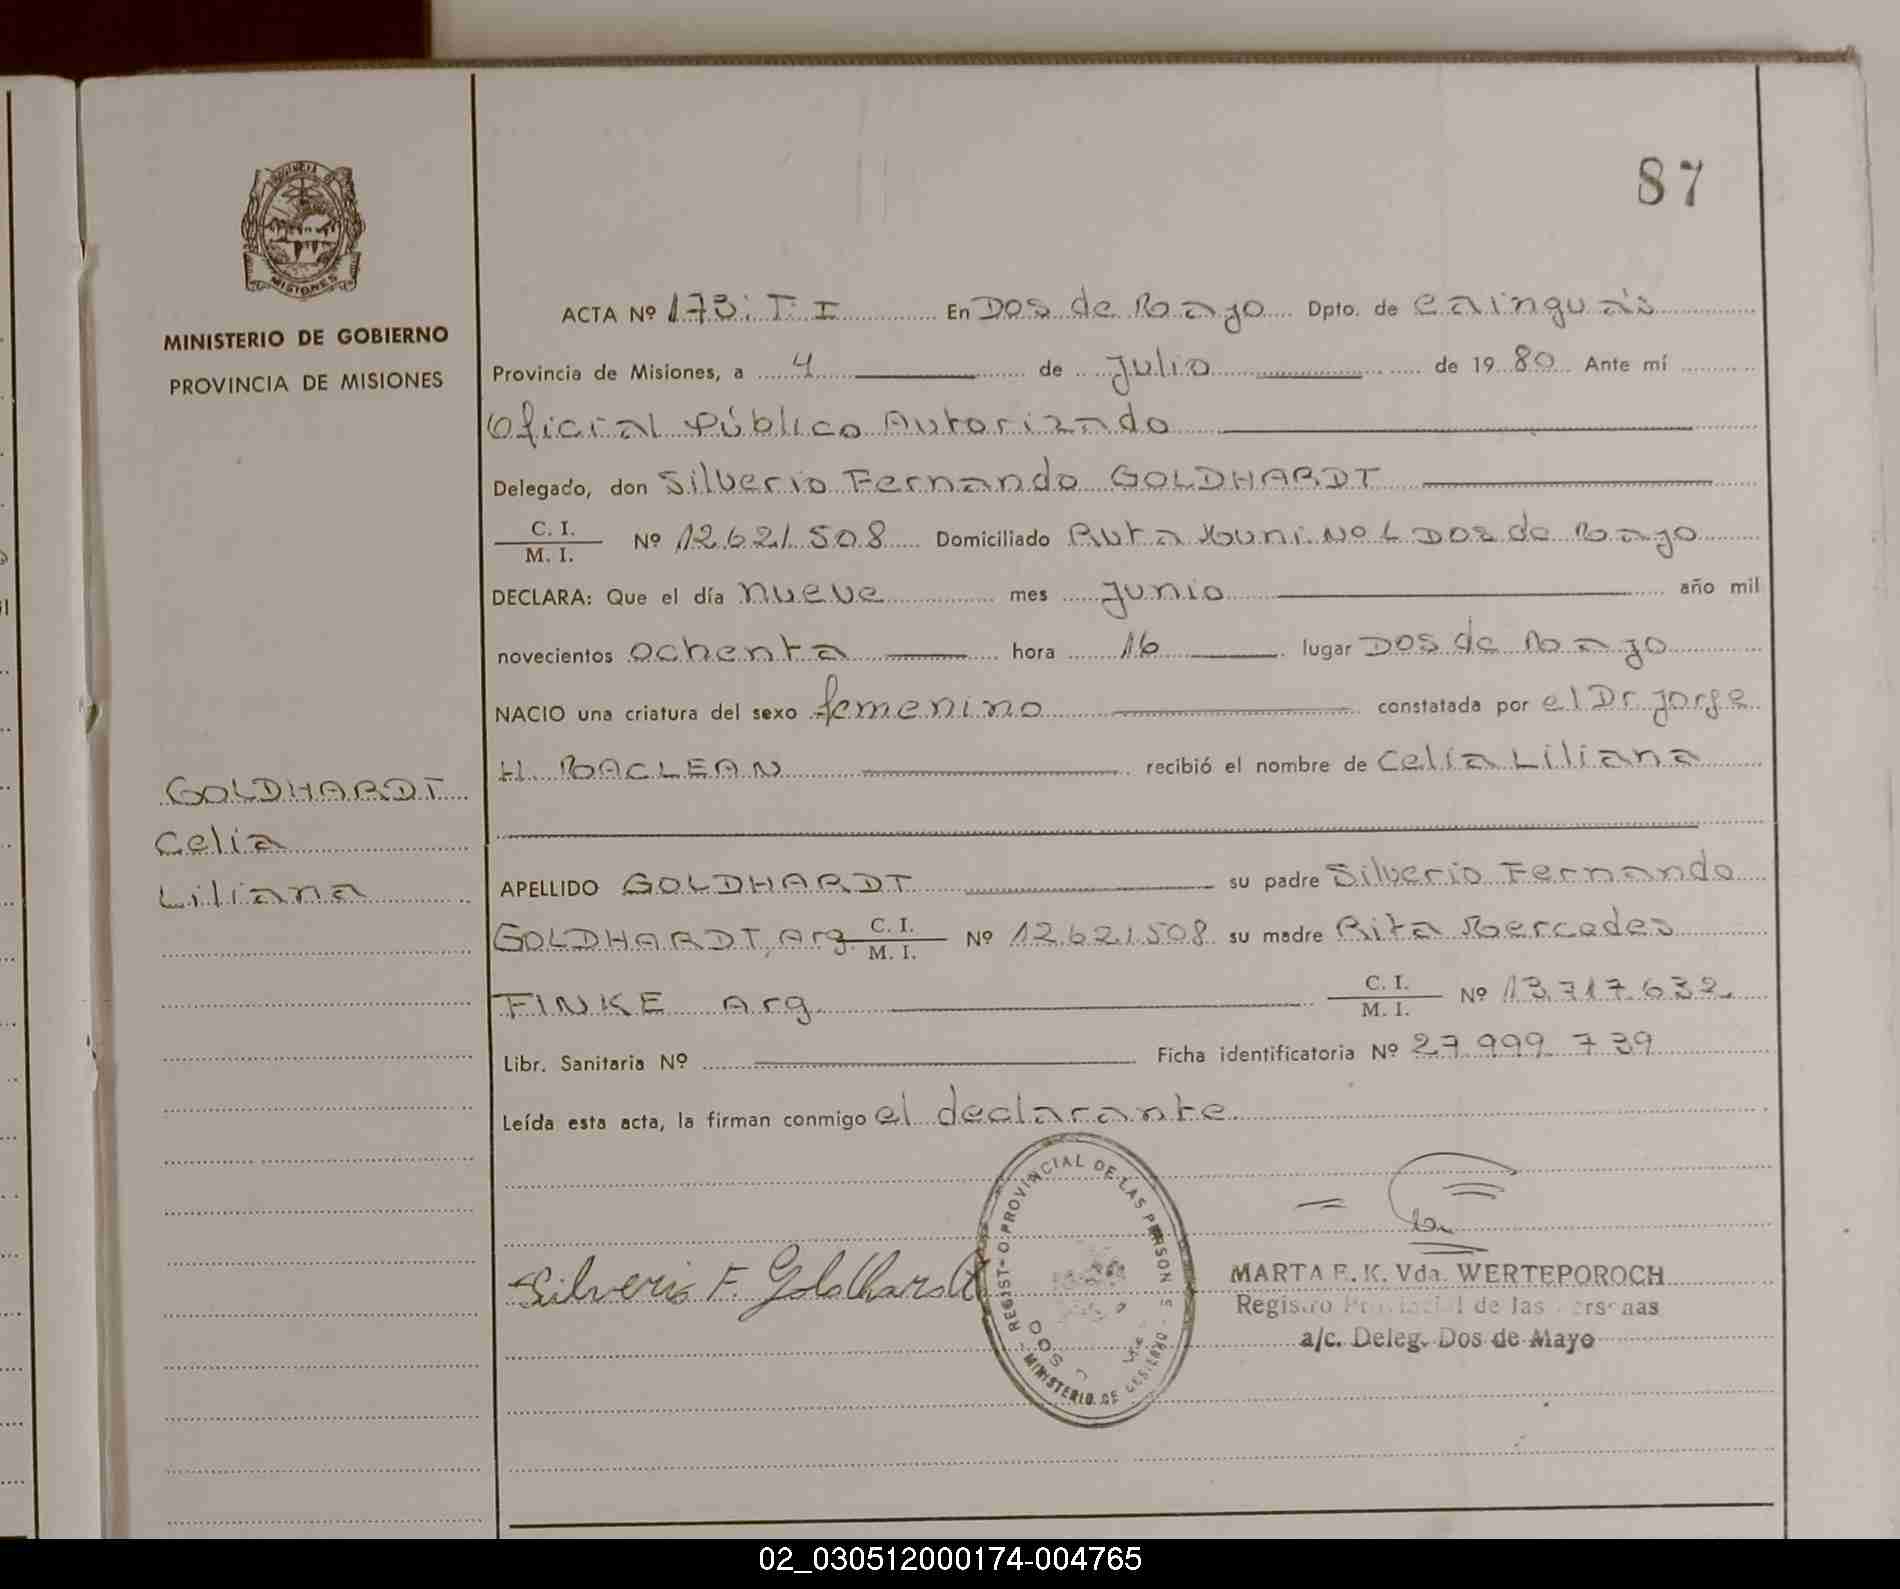 87
MISIONES
MINISTERIO DE GOBIERNO
PROVINCIA DE MISIONES
ACTA Nº 173: T: I En Dos de Mayo Dpto. de Cainguás
Provincia de Misiones, a 4 de Julio de 1980 Ante mí
Oficial Público Autorizado
Delegado, don Silverio Fernando GOLDHARDT
C. I.
M. I. Nº 12.621.508 Domiciliado Ruta Muni. Nº L Dos de Mayo
DECLARA: Que el día nueve mes Junio año mil
novecientos ochenta hora 16 lugar Dos de Mayo
NACIO una criatura del sexo femenino constatada por el Dr. Jorge
H. MACLEAN recibió el nombre de Celia Liliana
GOLDHARDT
Celia
Liliana
APELLIDO GOLDHARDT su padre Silverio Fernando
GOLDHARDT, Arg. C. I.
M. I. Nº 12.621.508 su madre Rita Mercedes
FINKE Arg. C. I.
M. I. Nº 13.717.632.
Libr. Sanitaria Nº Ficha identificatoria Nº 27 999 739
Leída esta acta, la firman conmigo el declarante
Silverio F. Goldhardt
PROVINCIAL DE LAS
MINISTERIO DE
MARTA E. K. Vda. WERTEPOROCH
Registro Provincial de las Personas
a/c. Deleg. Dos de Mayo
02_030512000174-004765